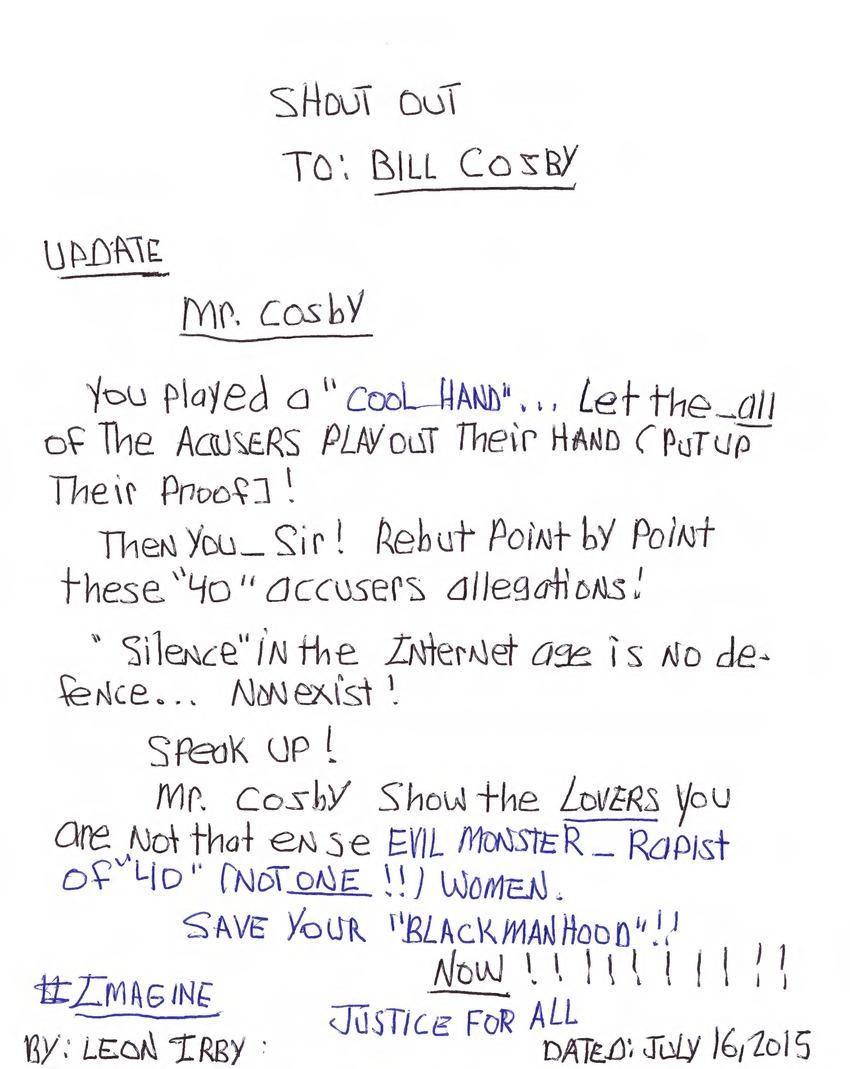 SHOUT OUT
TO: BILL COSBY
UPDATE
Mr. Cosby
You played a "COOL HAND"... Let the all
of The ACUSERS PLAY OUT Their HAND (PUT UP
Their Proof]!
Then You_ Sir! Rebut Point by Point
these "40" accusers allegations!
"Silence" in the Internet age is no de-
fence... Nonexist!
Speak UP!
Mr. Cosby Show the LOVERS you
are Not that ense EVIL MONSTER_ Rapist
of "40" (NOT ONE !!) WOMEN.
SAVE YOUR "BLACK MANHOOD"!!
NOW !!!!!!!!!!!
#IMAGINE
JUSTICE FOR ALL
BY: LEON IRBY :
DATED: JULY 16, 2015